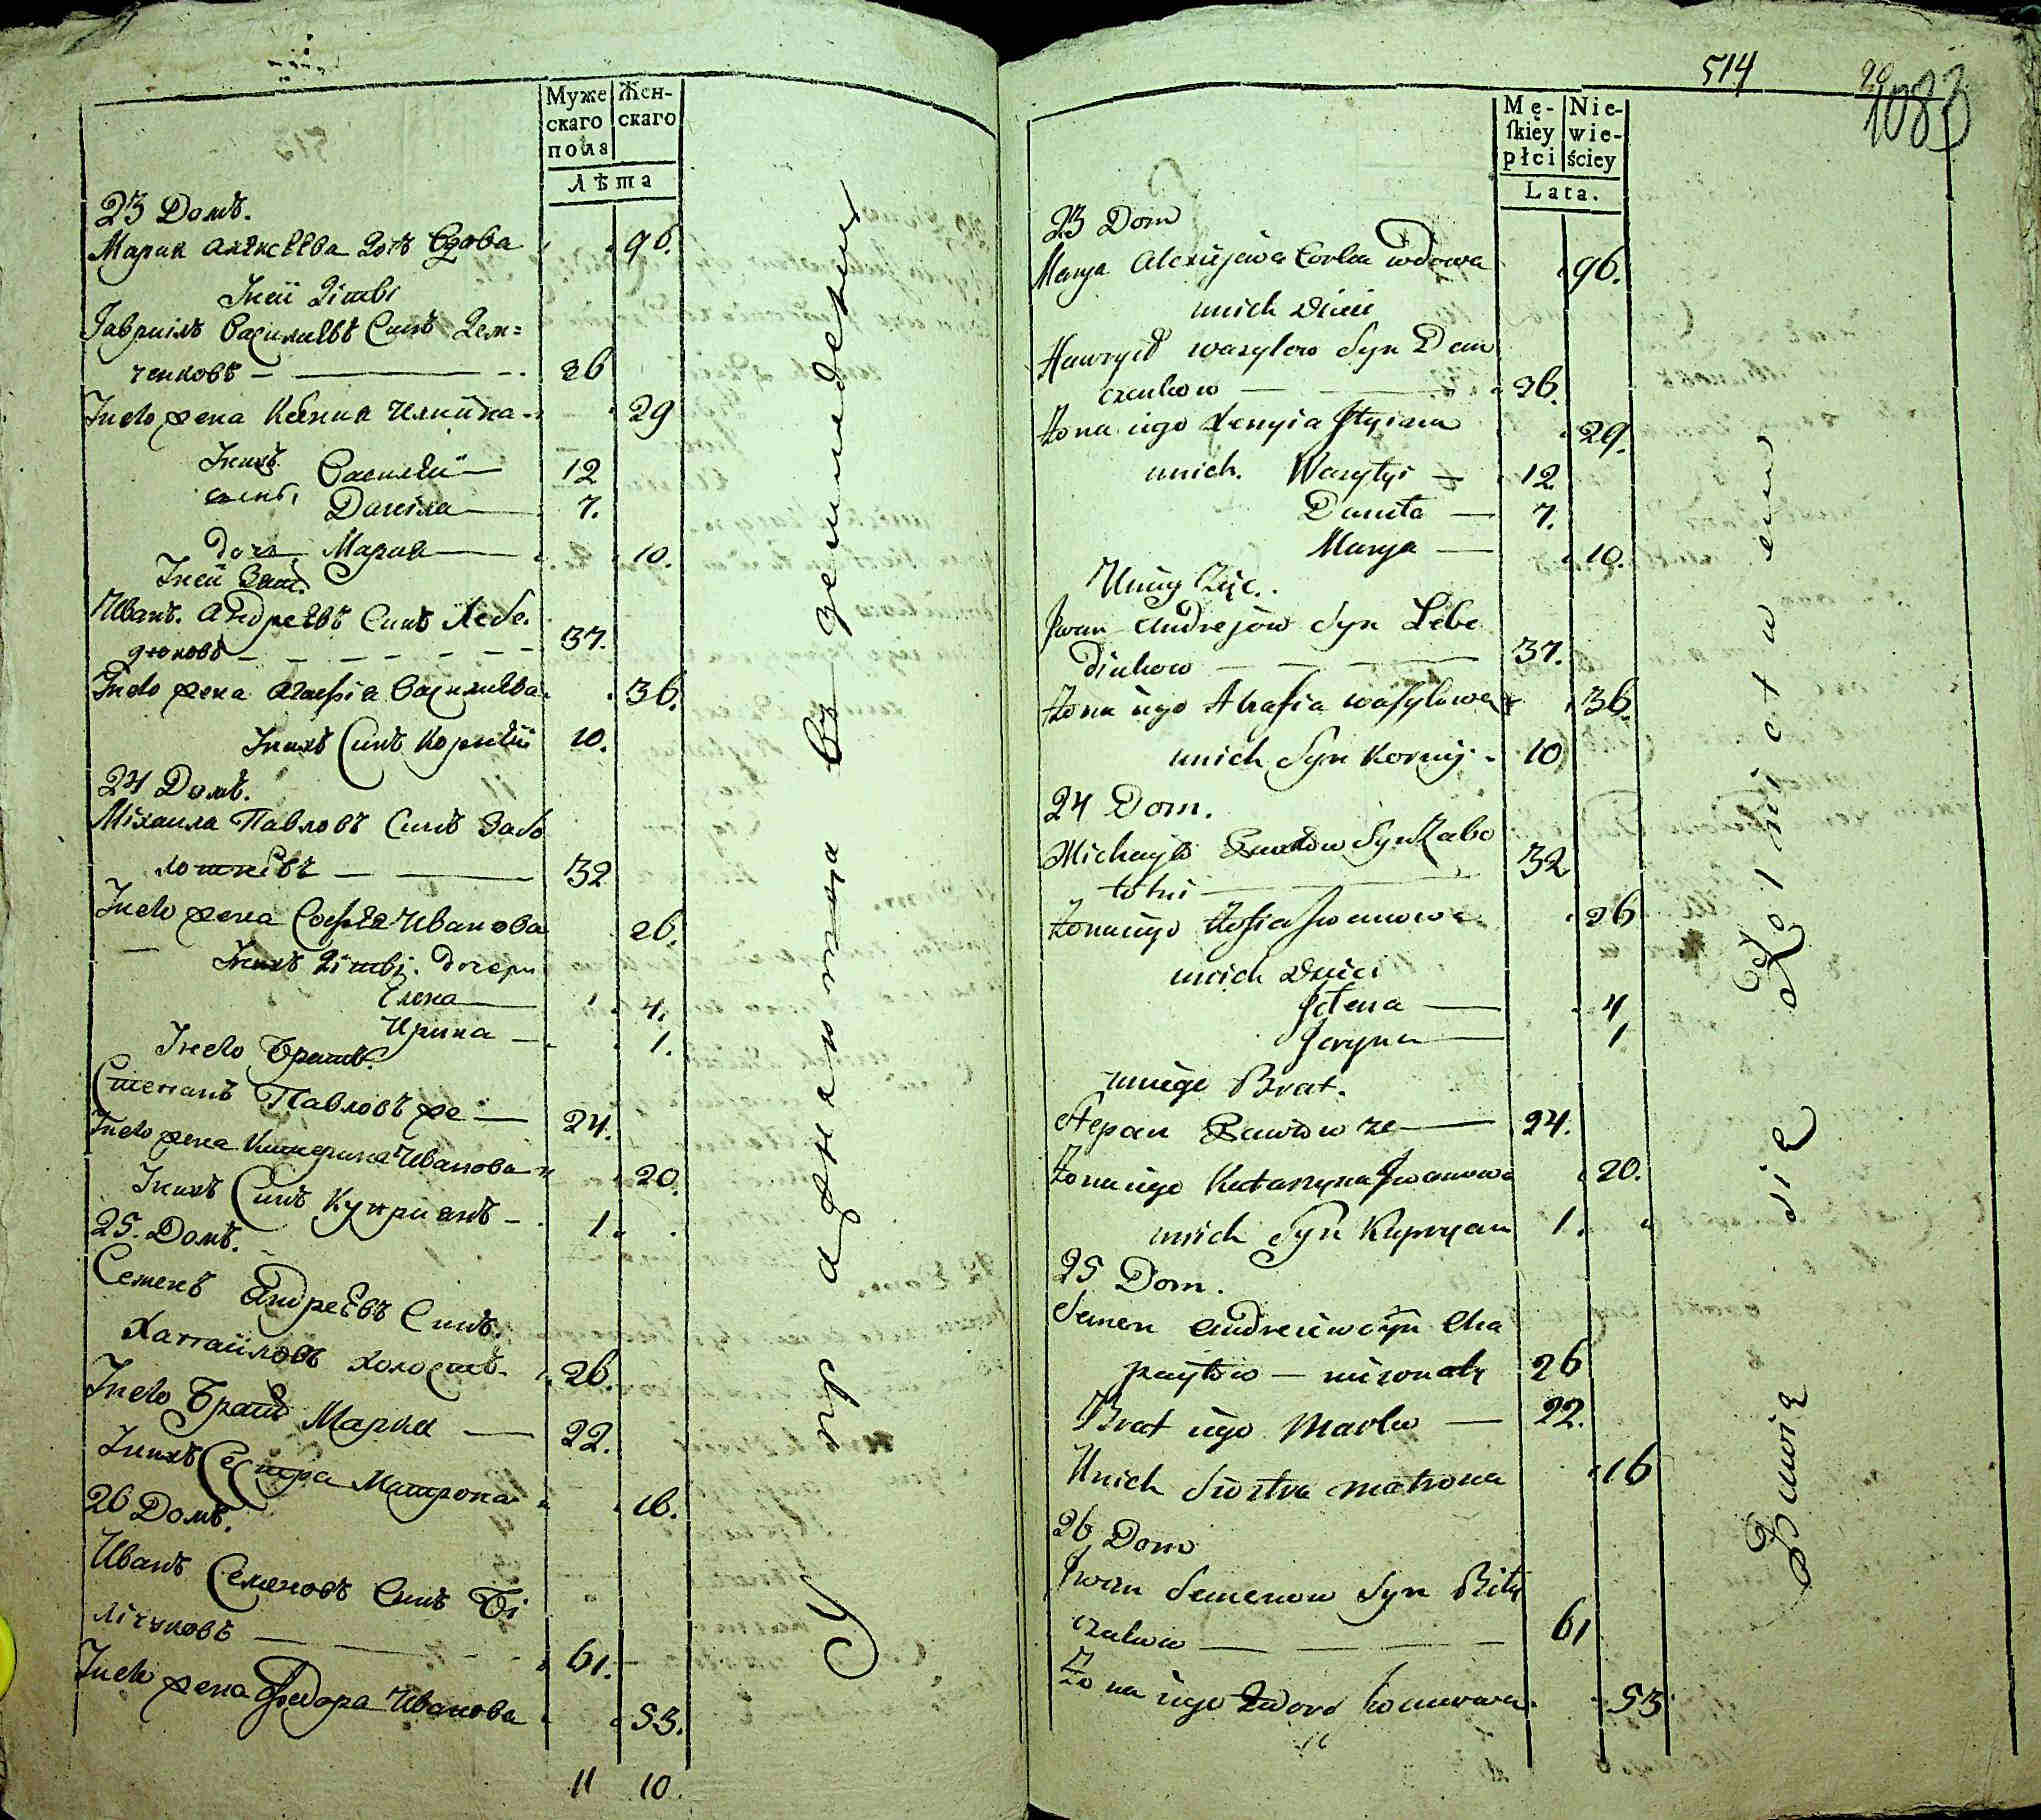 Муже
скаго
пола
Жен-
скаго
Лѣта
23 Домъ.
Мария Алексѣева Дочъ Вдова 96.
Унеи Дѣти
Гавриилъ Василиевъ Синъ Дем=
ченковъ — 26
Унево жена Ксения 29
Унихъ Василѣи — 12
Синъ, Данѣила — 7.
дочъ Мария — 10.
Унеи Зят.
Иванъ Андреевъ Синъ Лебе
дюковъ — 37.
Унево жена Агафія Василиева 36.
Унихъ Синъ Корнѣй 10.
24 Домъ.
Міхаила Павловъ Синъ Забо
лотнѣвъ — 32
Унево жена Софѣя Иванова 26.
Унихъ Дѣти. дочери
Елена — 4.
Ирина — 1.
Унево Братъ.
Степанъ Павловъ же — 24.
Унево жена Катерина Иванова 20.
Унихъ Синъ Куприанъ — 1.
25. Домъ.
Семенъ Андреевъ Синъ.
Хапаиловъ холостъ. 26.
Унево Братъ Марка — 22.
Унихъ Сестра Матрона 16.
26 Домъ.
Иванъ Семеновъ Синъ Бі
лічуковъ — 61.
Унево жена Федора Иванова 53.
11 10.
У пр а жн яю тца въ земледелии
514
1083
Mę-
ſkiéy
płci
Nie-
wie-
ściey
Lata.
23 Dom
Marya Alexiejewa Corka wdowa 96.
unich Dzieci
Hawryło wasylow Syn Dem
czenkow — 26.
Zona iego Xenyia 29.
unich. Wasylyi — 12
Daniło — 7.
Marya — 10.
Uniey Zięc.
Jwan Andrejow Syn Lebe
diukow — 37.
Zona iego Ahafia wasylowa 36.
unich Syn Korniy 10
24 Dom.
Michayło Pawłow Syn Zabo
łotni — 32
Zona iego Zofia Jwanowa 26
unich Dzieci
Jełena — 4
Jeryna — 1
uniego Brat.
Stepan Pawłow ze — 24.
Zona iego Katarzyna Jwanowa 20.
unich Syn Kupryan 1.
25 Dom.
Semen Andreiew Syn Cha
payłow — niezonaty 26
Brat iego Marko — 22.
Unich Siostra Matrona 16
26 Dom
Jwan Semenow Syn Bili
czukow — 61
Zona iego Fedora Jwanowa. 53
Bawią się Rolnictwem